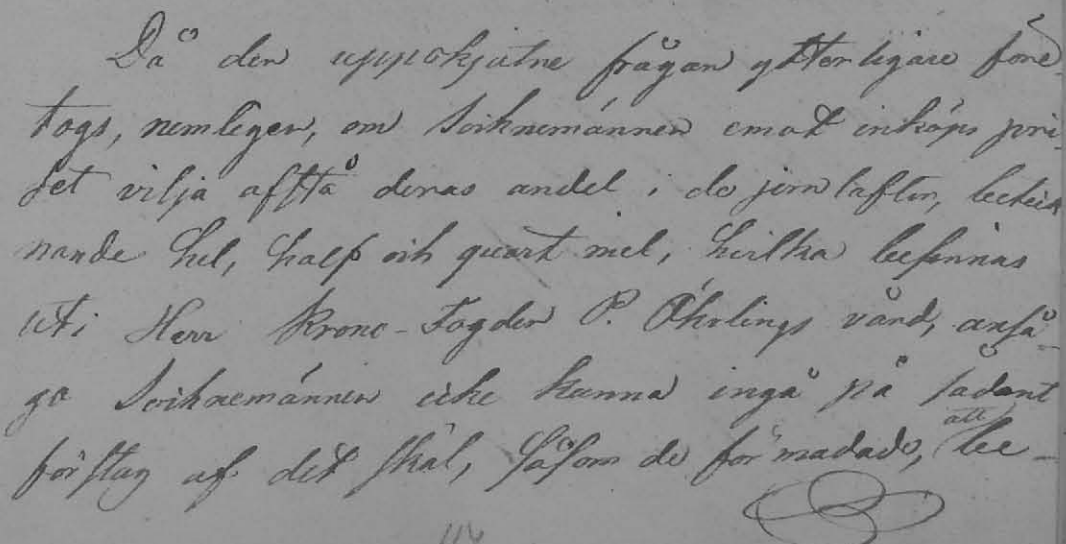 Då den uppskjutne frågan ytterligare före-
togs, nemligen, om Soknemännen emot inköps pri-
set vilja afstå deras andel i de jerntaflor, beteck
nande hel, half och quart mil, hvilka befinnas
uti Herr Krono-Fogden P. Öhrlings vård, anså-
go Soknemännen icke kunna ingå på sådant
förslag af det skäl, såsom de förmadade, att be-